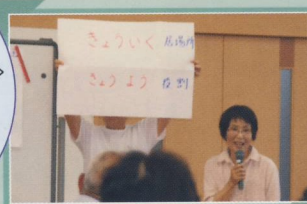 きょういく 居場所
きょうよう 役割